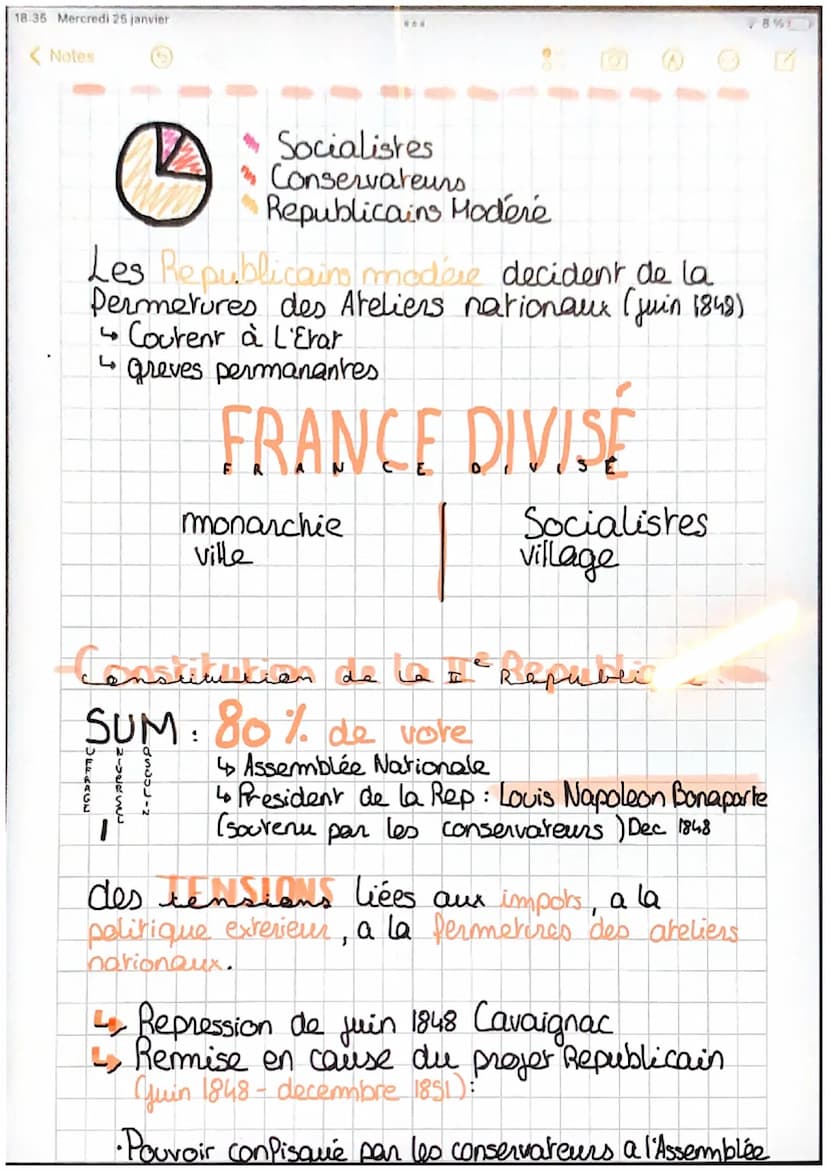 18:36 Mercredi 25 janvier
8 %
Notes
Socialistes
Conservateurs
Republicains Modéré
Les Republicains modére decident de la
fermetures des Ateliers nationaux (juin 1848)
↳ Coutent à L'Etat
↳ greves permanantes
FRANCE DIVISÉ
FRANCE DIVISÉ
monarchie
ville
Socialistes
village
Constitution de la IIe Republi
SUM : 80 % de vote
UFFRAGE
NIVERSEL
ASCULIN
↳ Assemblée Nationale
↳ President de la Rep : Louis Napoleon Bonaparte
(soutenu par les conservateurs) Dec 1848
des TENSIONS liées aux impots, a la
politique exterieur, a la fermetures des ateliers
nationaux.
↳ Repression de juin 1848 Cavaignac
↳ Remise en cause du projet Republicain
(juin 1848 - decembre 1851):
·Pouvoir confisquié par les conservateurs a l'Assemblée